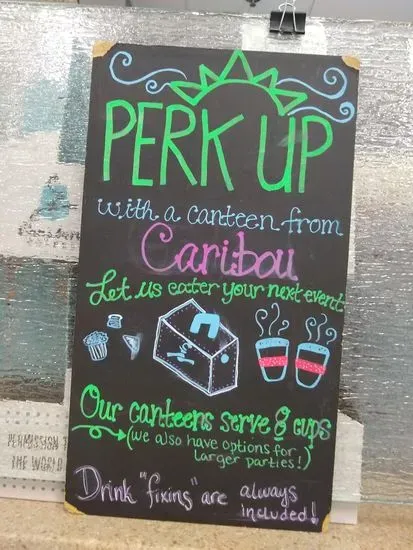 PERK UP
with a canteen from
Caribou
Let us cater your next event
Our canteens serve 8 cups
(we also have options for
larger parties!)
Drink "fixins" are always
included!
PERMISSION T
THE WORLD